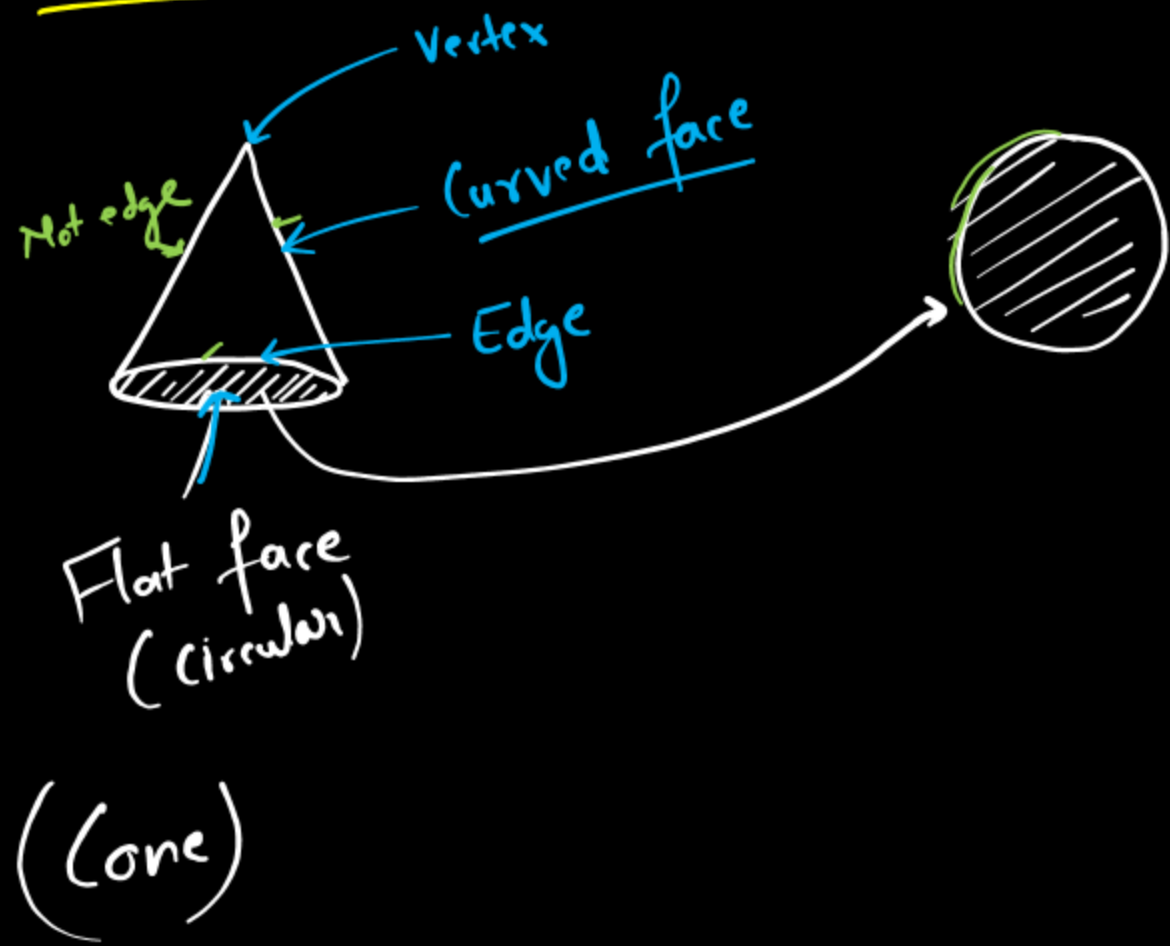 Vertex
Curved face
Not edge
Edge
Flat face
(Circular)
(Cone)